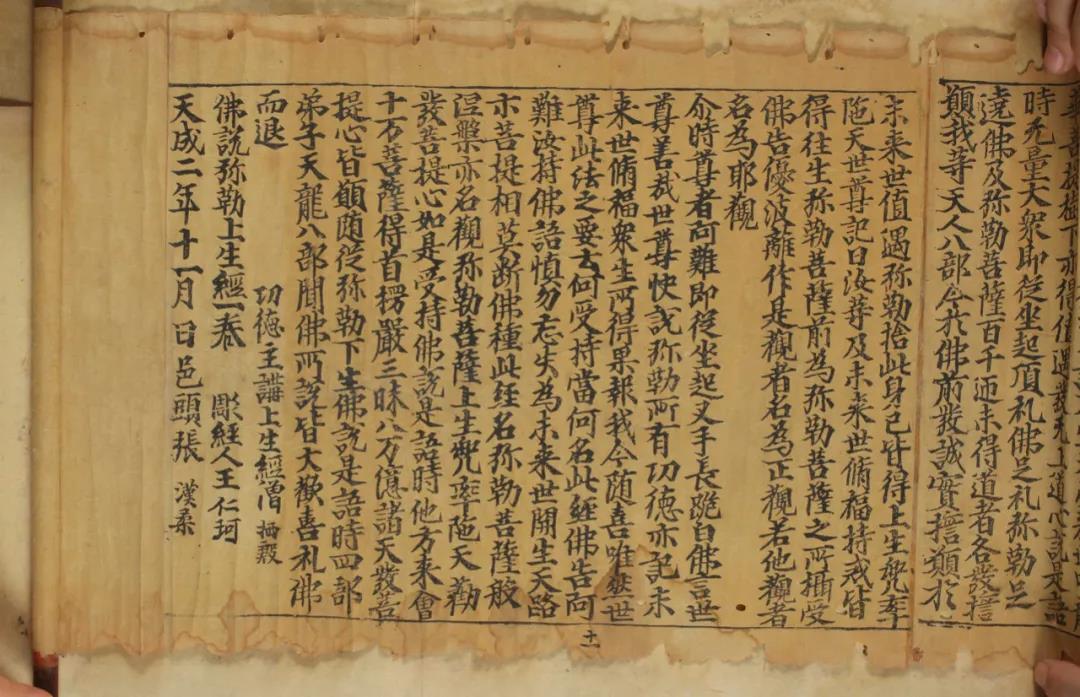 樹下亦得值遇發无上道心說是語
時无量大衆即從坐起頂礼佛足礼弥勒足
遶佛及弥勒菩薩百千迊未得道者各發誓
願我等天人八部今於佛前發誠實誓願於
未来世值遇弥勒捨此身已皆得上生兜率
陁天世尊記曰汝等及未来世脩福持戒皆
得往生弥勒菩薩前為弥勒菩薩之所攝受
佛告優波離作是觀者名為正觀若他觀者
名為耶觀
尒時尊者阿難即從坐起叉手長跪白佛言世
尊善哉世尊快說弥勒所有功德亦記未
来世脩福衆生所得果報我今随喜唯然世
尊此法之要云何受持當何名此經佛告阿
難汝持佛語慎勿忘失為未来世開生天路
示菩提相莫断佛種此経名弥勒菩薩般
涅槃亦名觀弥勒菩薩上生兜率陁天勸
發菩提心如是受持佛說是語時他方来會
十万菩薩得首楞嚴三昧八万億諸天發菩
提心皆願随從弥勒下生佛說是語時四部
弟子天龍八部聞佛所說皆大歡喜礼佛
而退
功德主講上生經僧 栖殷
佛說弥勒上生經一卷 彫經人王仁珂
天成二年十一月日邑頭張 漢柔
十一